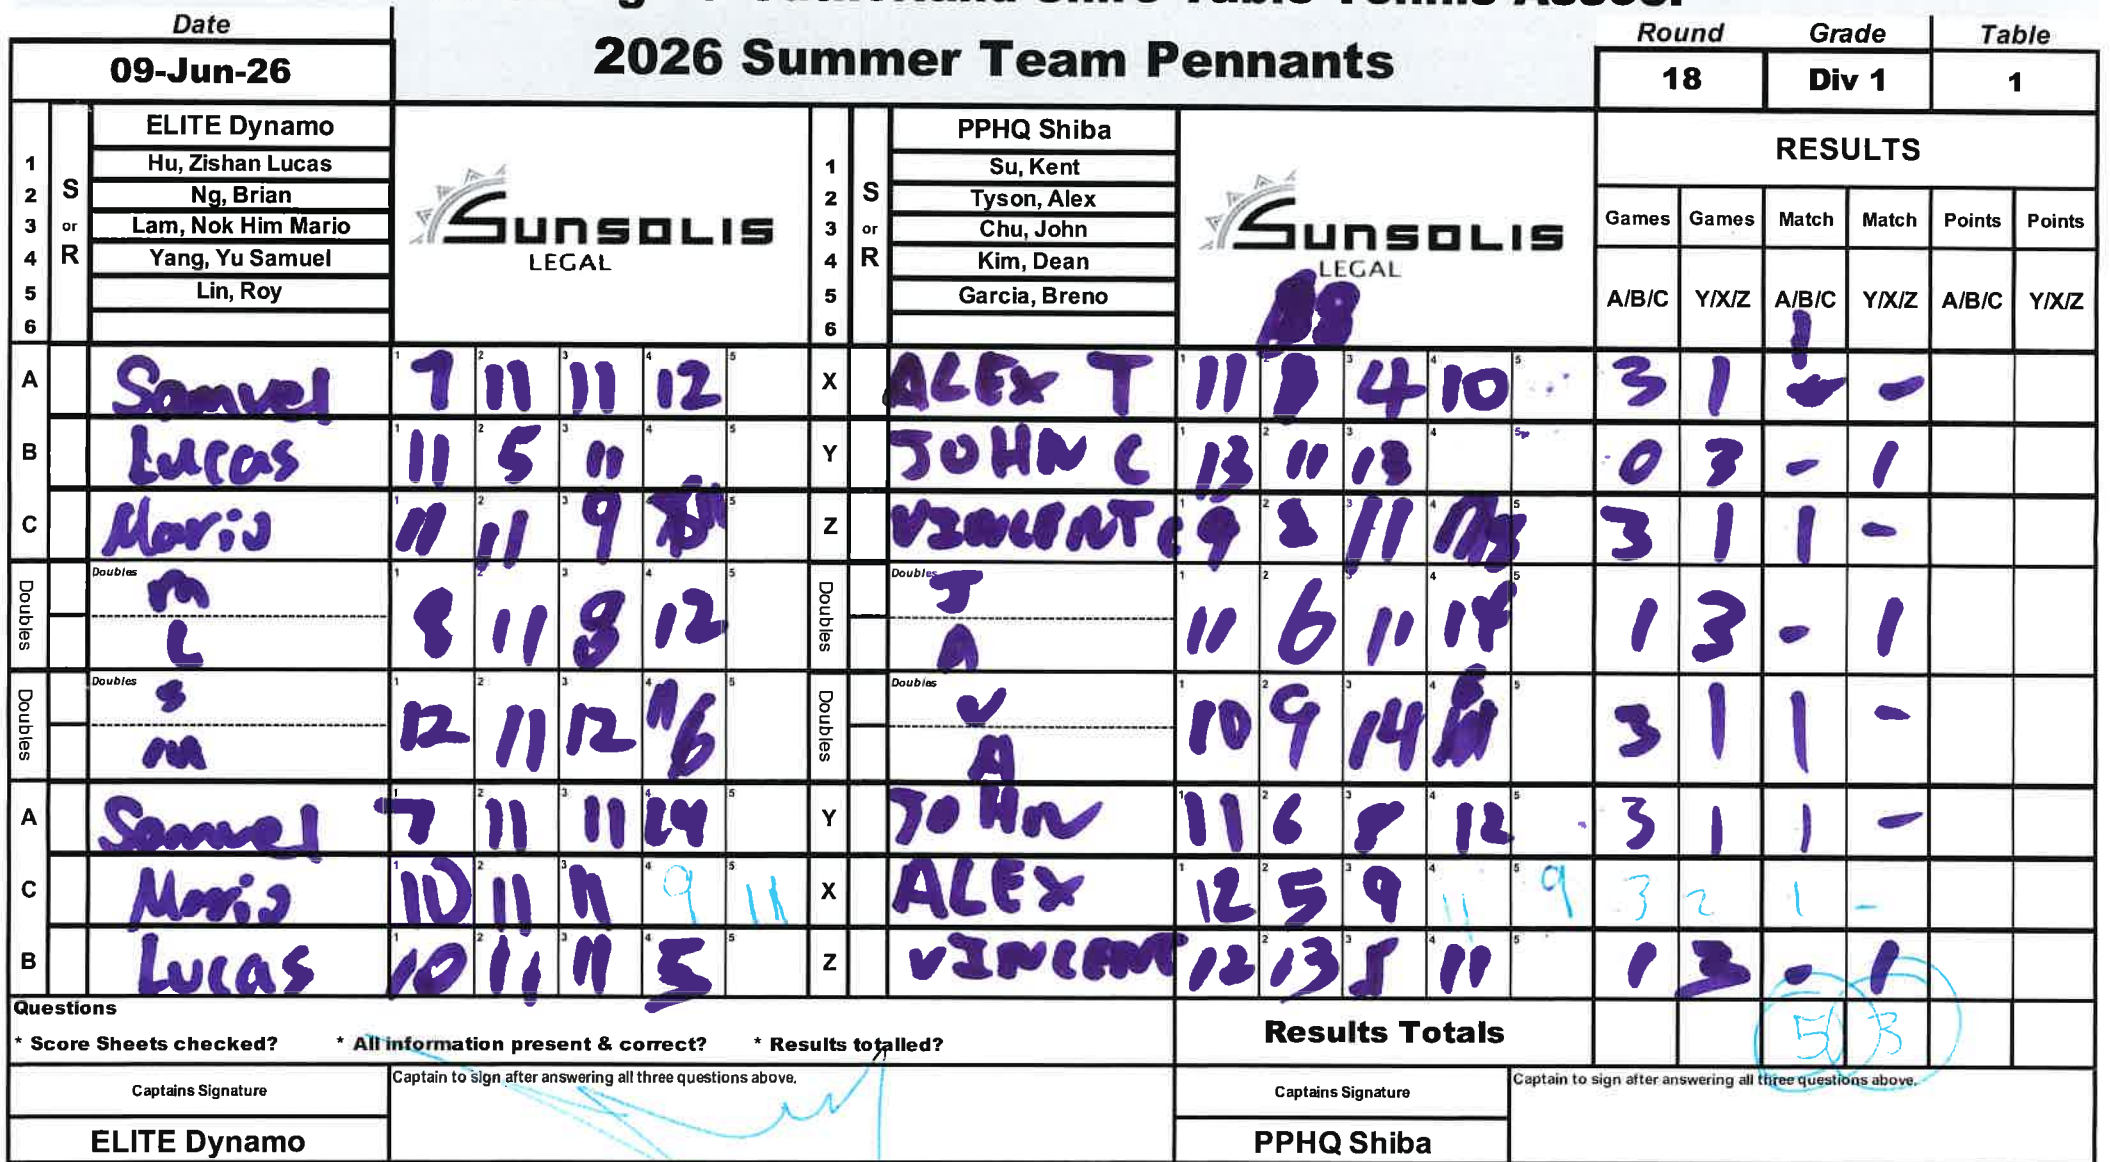 Date
09-Jun-26
2026 Summer Team Pennants
Round Grade Table
18 Div 1 1
ELITE Dynamo
1 Hu, Zishan Lucas
2 Ng, Brian
3 Lam, Nok Him Mario
4 Yang, Yu Samuel
5 Lin, Roy
6
S or R
SUNSOLIS
LEGAL
PPHQ Shiba
1 Su, Kent
2 Tyson, Alex
3 Chu, John
4 Kim, Dean
5 Garcia, Breno
6
S or R
SUNSOLIS
LEGAL
RESULTS
Games Games Match Match Points Points
A/B/C Y/X/Z A/B/C Y/X/Z A/B/C Y/X/Z
A Samuel 7 11 11 12 X ALEX T 11 4 10 3 1 1 -
B Lucas 11 5 11 Y JOHN C 13 11 13 0 3 - 1
C Mario 11 11 9 Z VINCENT C 9 8 11 3 1 1 -
Doubles M L 8 11 8 12 Doubles J A 11 6 11 14 1 3 - 1
Doubles S M 12 11 12 Doubles V A 10 9 14 3 1 1 -
A Samuel 7 11 11 14 Y JOHN 11 6 8 12 3 1 1 -
C Mario 10 11 11 9 11 X ALEX 12 5 9 11 9 3 2 1 -
B Lucas 10 11 11 5 Z VINCENT 12 13 8 11 1 3 - 1
Questions
* Score Sheets checked? * All information present & correct? * Results totalled?
Results Totals 5 3
Captains Signature
Captain to sign after answering all three questions above.
Captains Signature
Captain to sign after answering all three questions above.
ELITE Dynamo
PPHQ Shiba